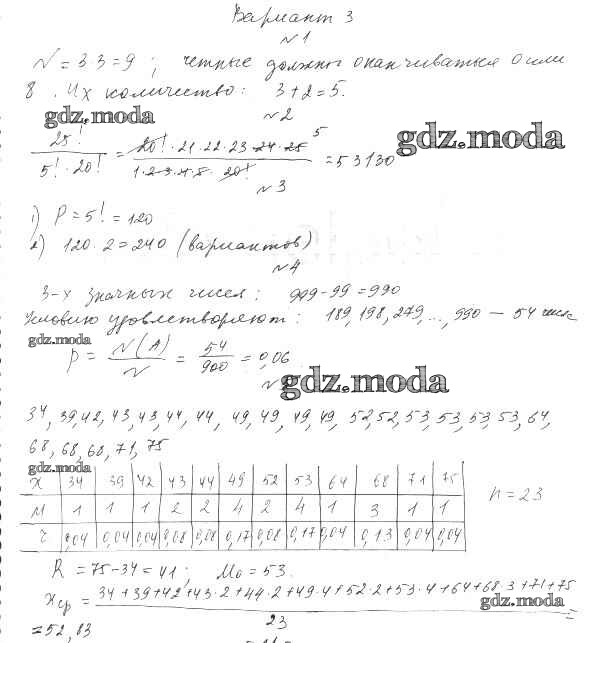 Вариант 3
№1
N = 3·3 = 9; четные должны оканчиваться 0 или
8. Их количество: 3+2=5.
gdz.moda
№2
gdz.moda
25! / 5!·20! = 20!·21·22·23·24·25 / 1·2·3·4·5·20! 5 = 53130
№3
1) P = 5! = 120
2) 120·2=240 (вариантов)
№4
3-х значных чисел: 999-99=990
Условию удовлетворяют: 189, 198, 279, ..., 990 — 54 числ
gdz.moda
p = N(A) / N = 54 / 900 = 0,06
gdz.moda
34, 39, 42, 43, 43, 44, 44, 49, 49, 49, 49, 52, 52, 53, 53, 53, 53, 64,
68, 68, 68, 71, 75
gdz.moda
X 34 39 42 43 44 49 52 53 64 68 71 75
M 1 1 1 2 2 4 2 4 1 3 1 1
n = 23
r 0,04 0,04 0,04 0,08 0,08 0,17 0,08 0,17 0,04 0,13 0,04 0,04
R = 75-34=41; Mo = 53.
xср = 34+39+42+43·2+44·2+49·4+52·2+53·4+64+68·3+71+75 / 23 =
gdz.moda
=52,83